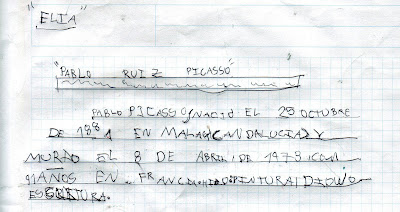 "ELIA"
"PABLO RUIZ PICASSO"
PABLO PICASSO, NACIO EL 25 OCTUBRE
DE 1881 EN MALAGA(ANDALUCIA) Y
MURIO EL 8 DE ABRIL DE 1973 (CON
91 AÑOS EN FRANCIA. HIZO PINTURA, DIBUJO
ESCULTURA.